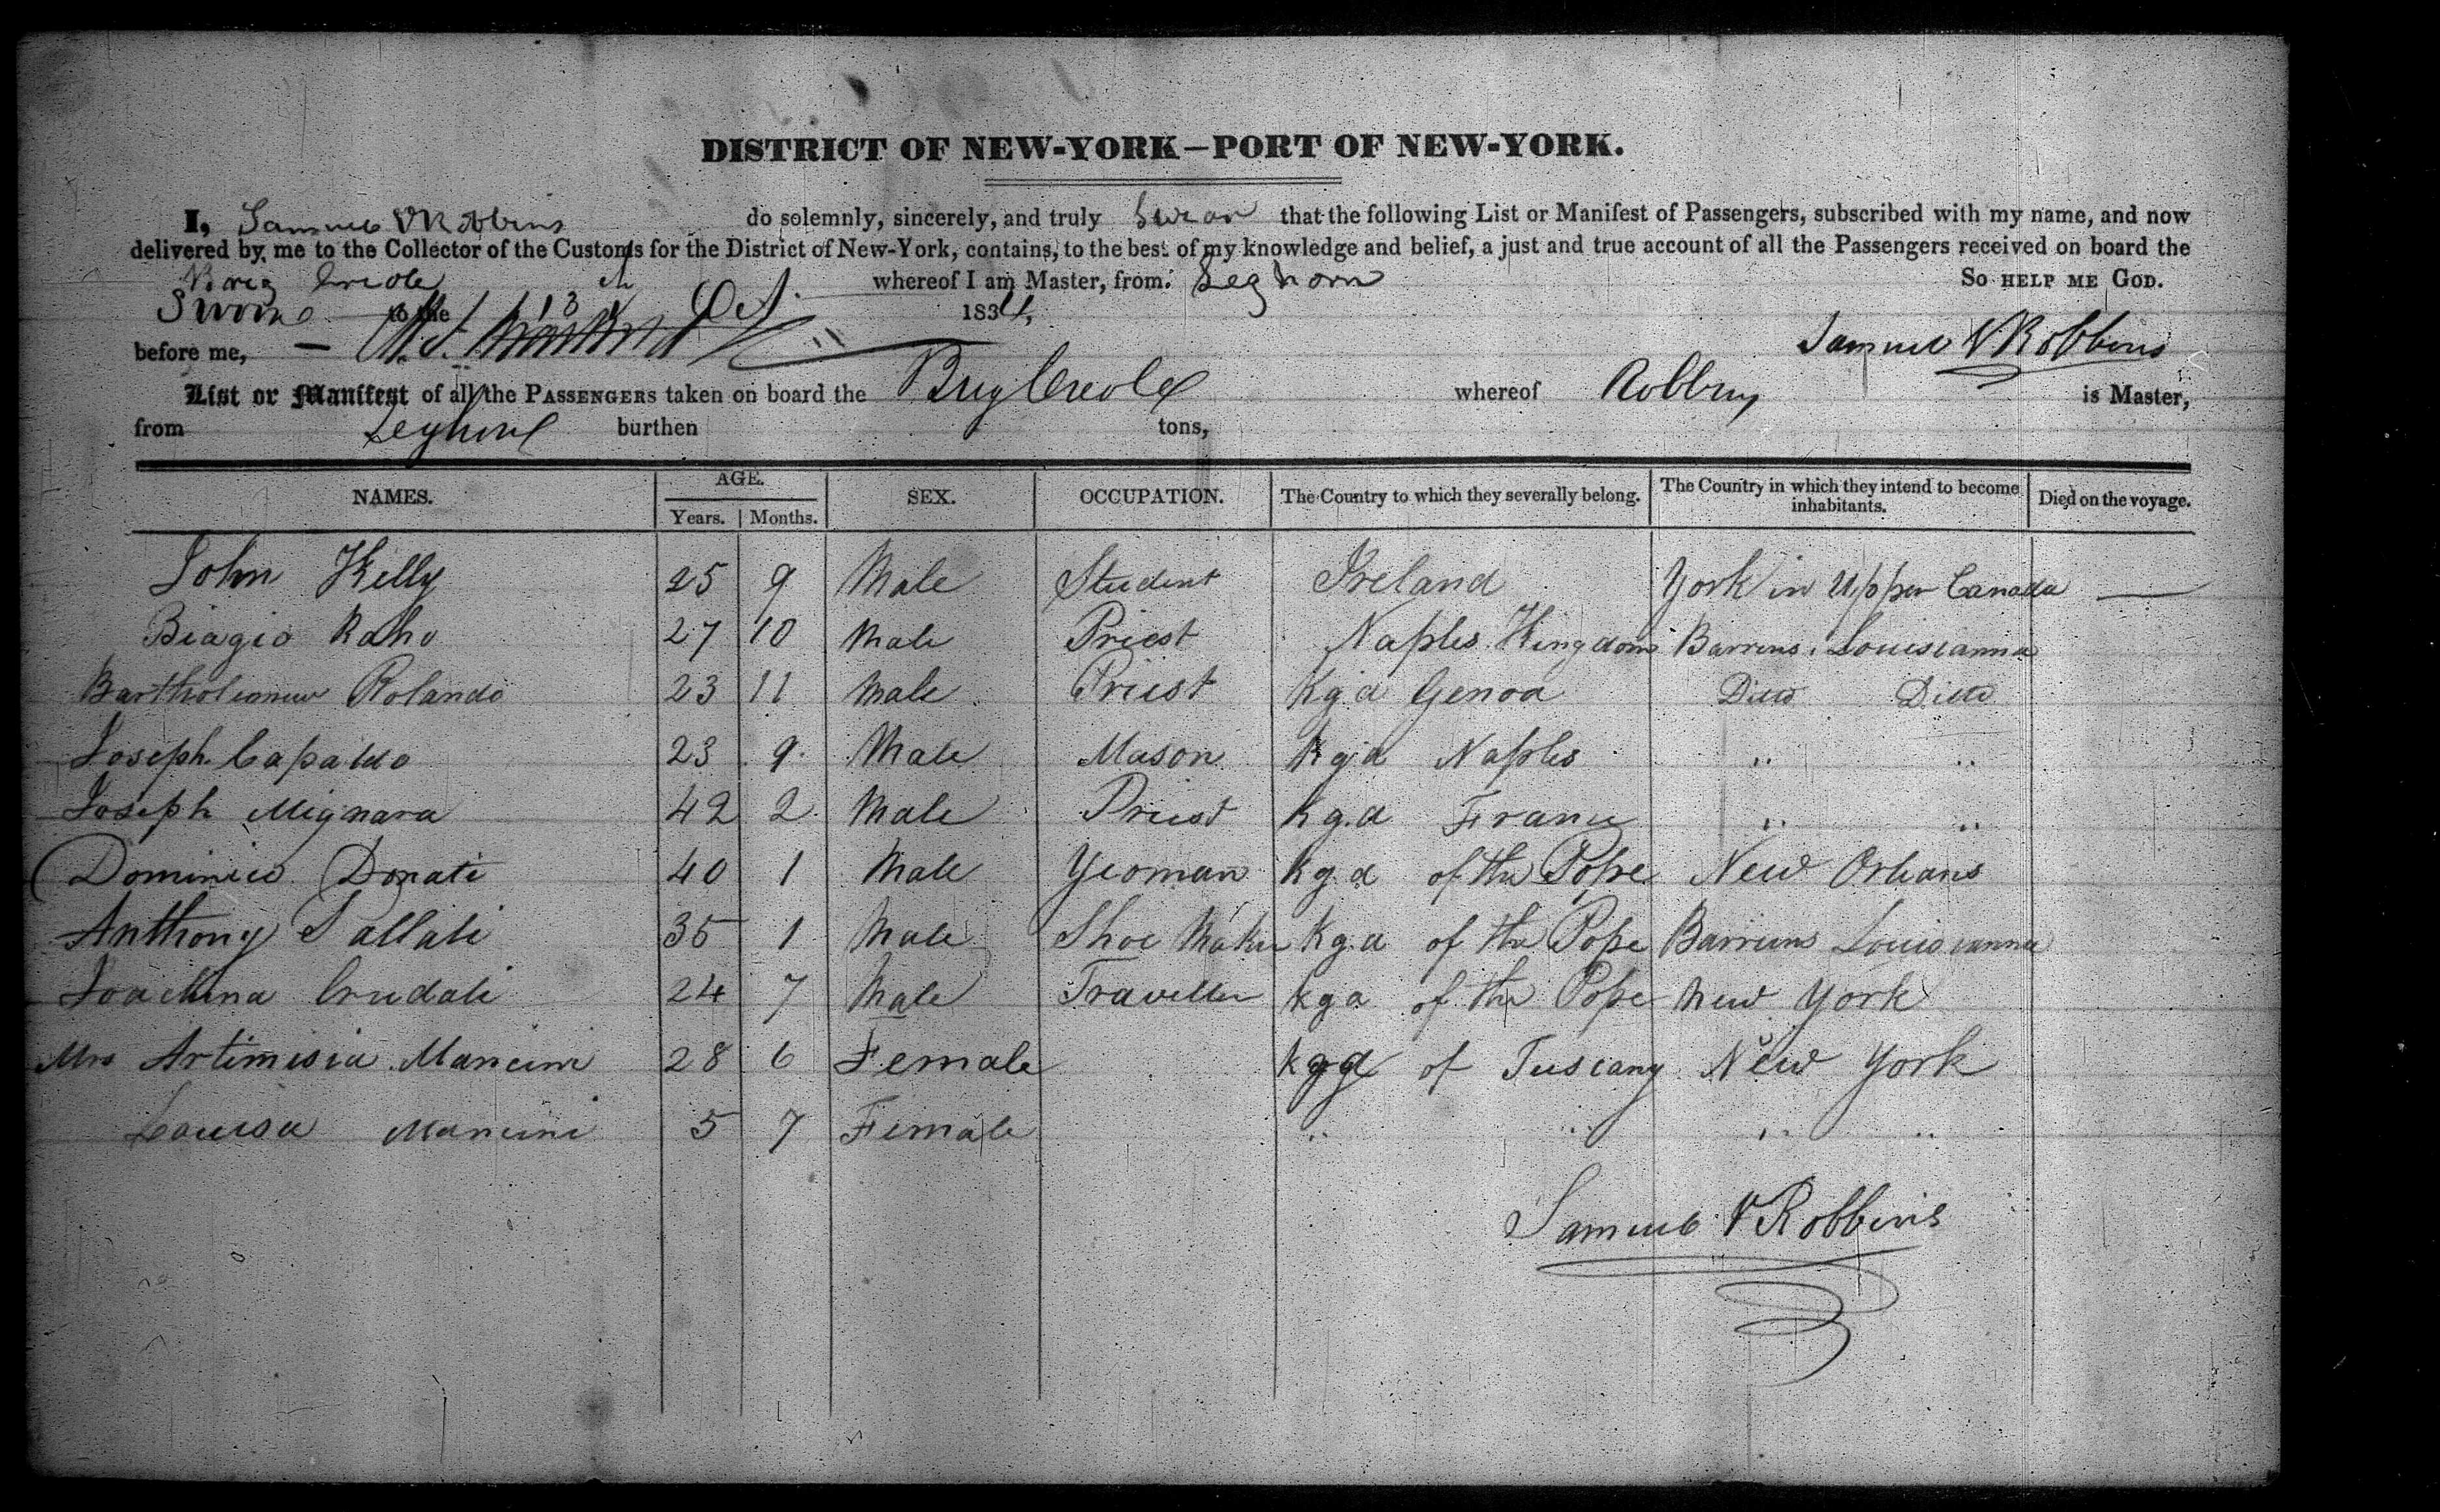 DISTRICT OF NEW-YORK—PORT OF NEW-YORK.
I, Samuel V Robbins do solemnly, sincerely, and truly Swear that the following List or Manifest of Passengers, subscribed with my name, and now
delivered by me to the Collector of the Customs for the District of New-York, contains, to the best of my knowledge and belief, a just and true account of all the Passengers received on board the
Brig Creole whereof I am Master, from Leghorn So help me God.
Sworn to the 13 Oct. 1834,
before me, Samuel V Robbins
List or Manifest of all the Passengers taken on board the Brig Creole whereof Robbins is Master,
from Leghorn burthen tons,
NAMES. AGE. Years. Months. SEX. OCCUPATION. The Country to which they severally belong. The Country in which they intend to become inhabitants. Died on the voyage.
John Kelly 25 9 Male Student Ireland York in Upper Canada —
Biagio Raho 27 10 Male Priest Naples Kingdom Barrens Louisianna
Bartholomew Rolando 23 11 Male Priest Kg.d Genoa Ditto Ditto
Joseph Capaldo 23 9 Male Mason Kg.d Naples " "
Joseph Mignara 42 2 Male Priest Kg.d France " "
Dominico Donati 40 1 Male Yeoman Kg.d of the Pope New Orleans
Anthony Pallati 35 1 Male Shoe Maker Kg.d of the Pope Barrens Louisianna
Joachina Crudeli 24 7 Male Traveller Kg.d of the Pope New York
Mrs Artimisia Mancini 28 6 Female Kgd of Tuscany New York
Louisa Mancini 5 7 Female " " " "
Samuel V Robbins